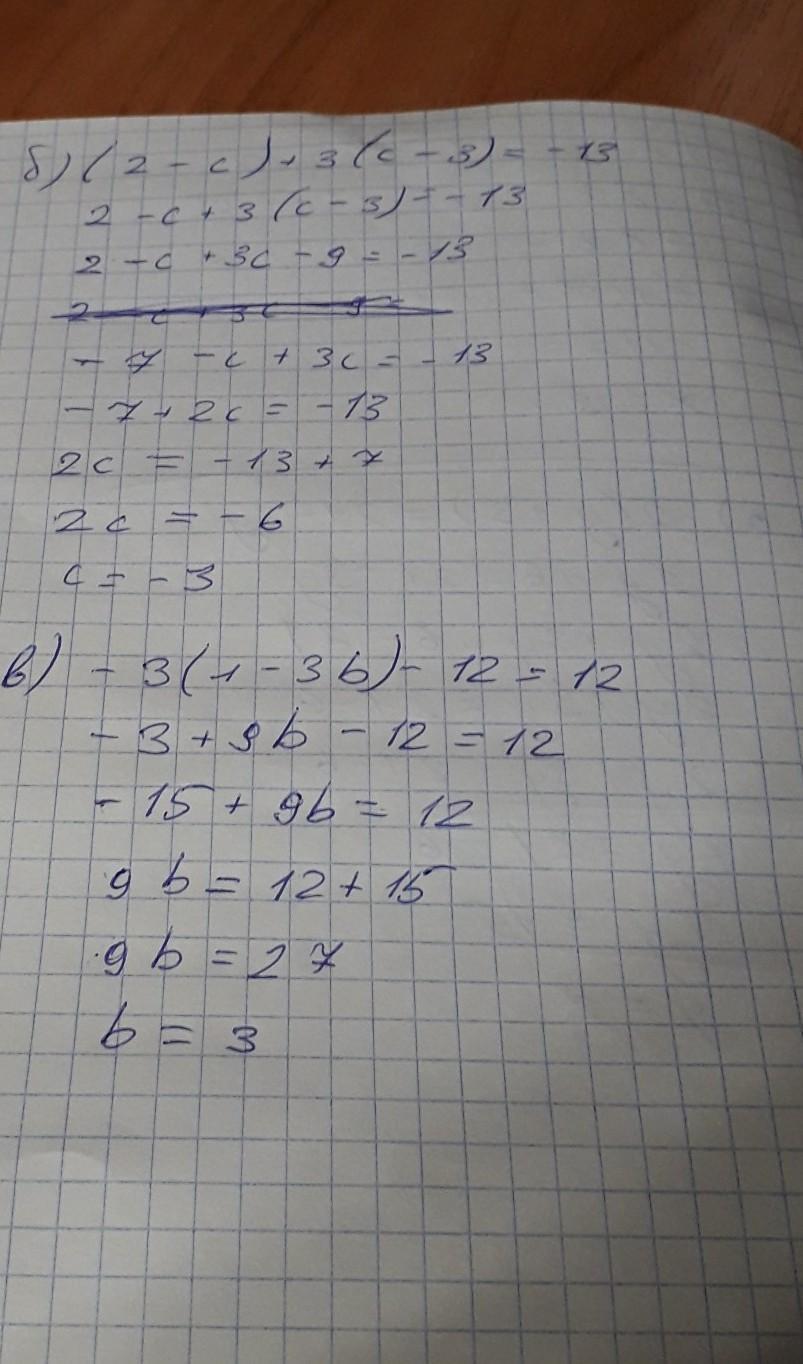 б) (2 - c) + 3(c - 3) = -13
2 - c + 3(c - 3) = -13
2 - c + 3c - 9 = -13
2 - c + 3c - 9 =
- 7 - c + 3c = -13
- 7 + 2c = -13
2c = -13 + 7
2c = -6
c = -3
в) - 3(1 - 3b) - 12 = 12
- 3 + 9b - 12 = 12
- 15 + 9b = 12
9b = 12 + 15
9b = 27
b = 3